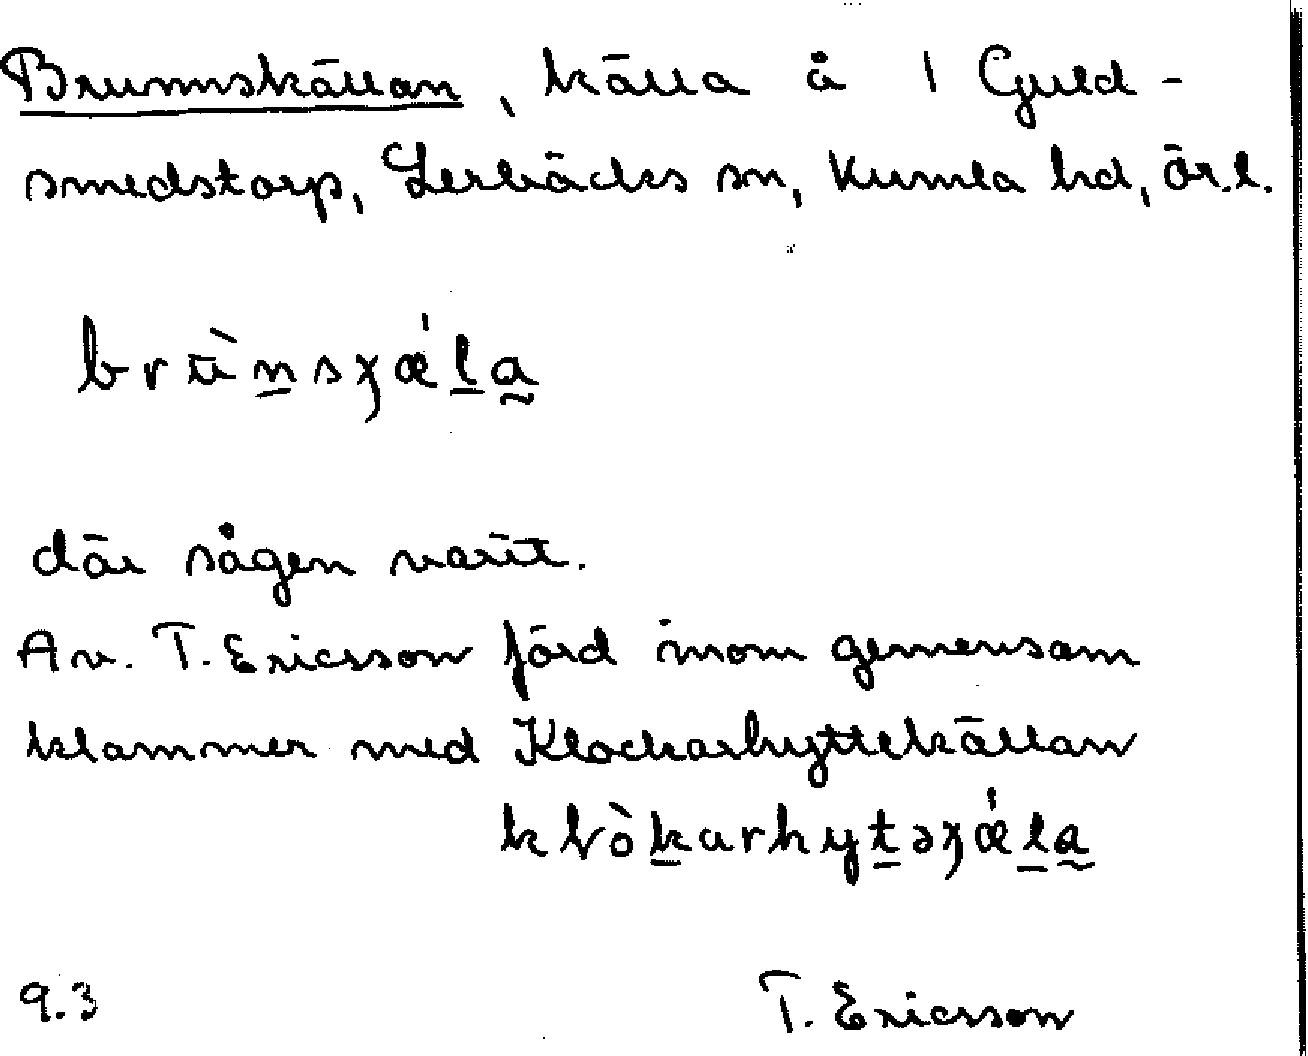 Brunnskällan, källa å 1 Guld-
smedstorp, Lerbäcks sn, Kumla hd, Ör.l.
där sågen varit.
Av. T. Ericsson förd inom gemensam
klammer med Klockarhyttekällan
9.3
T. Ericsson